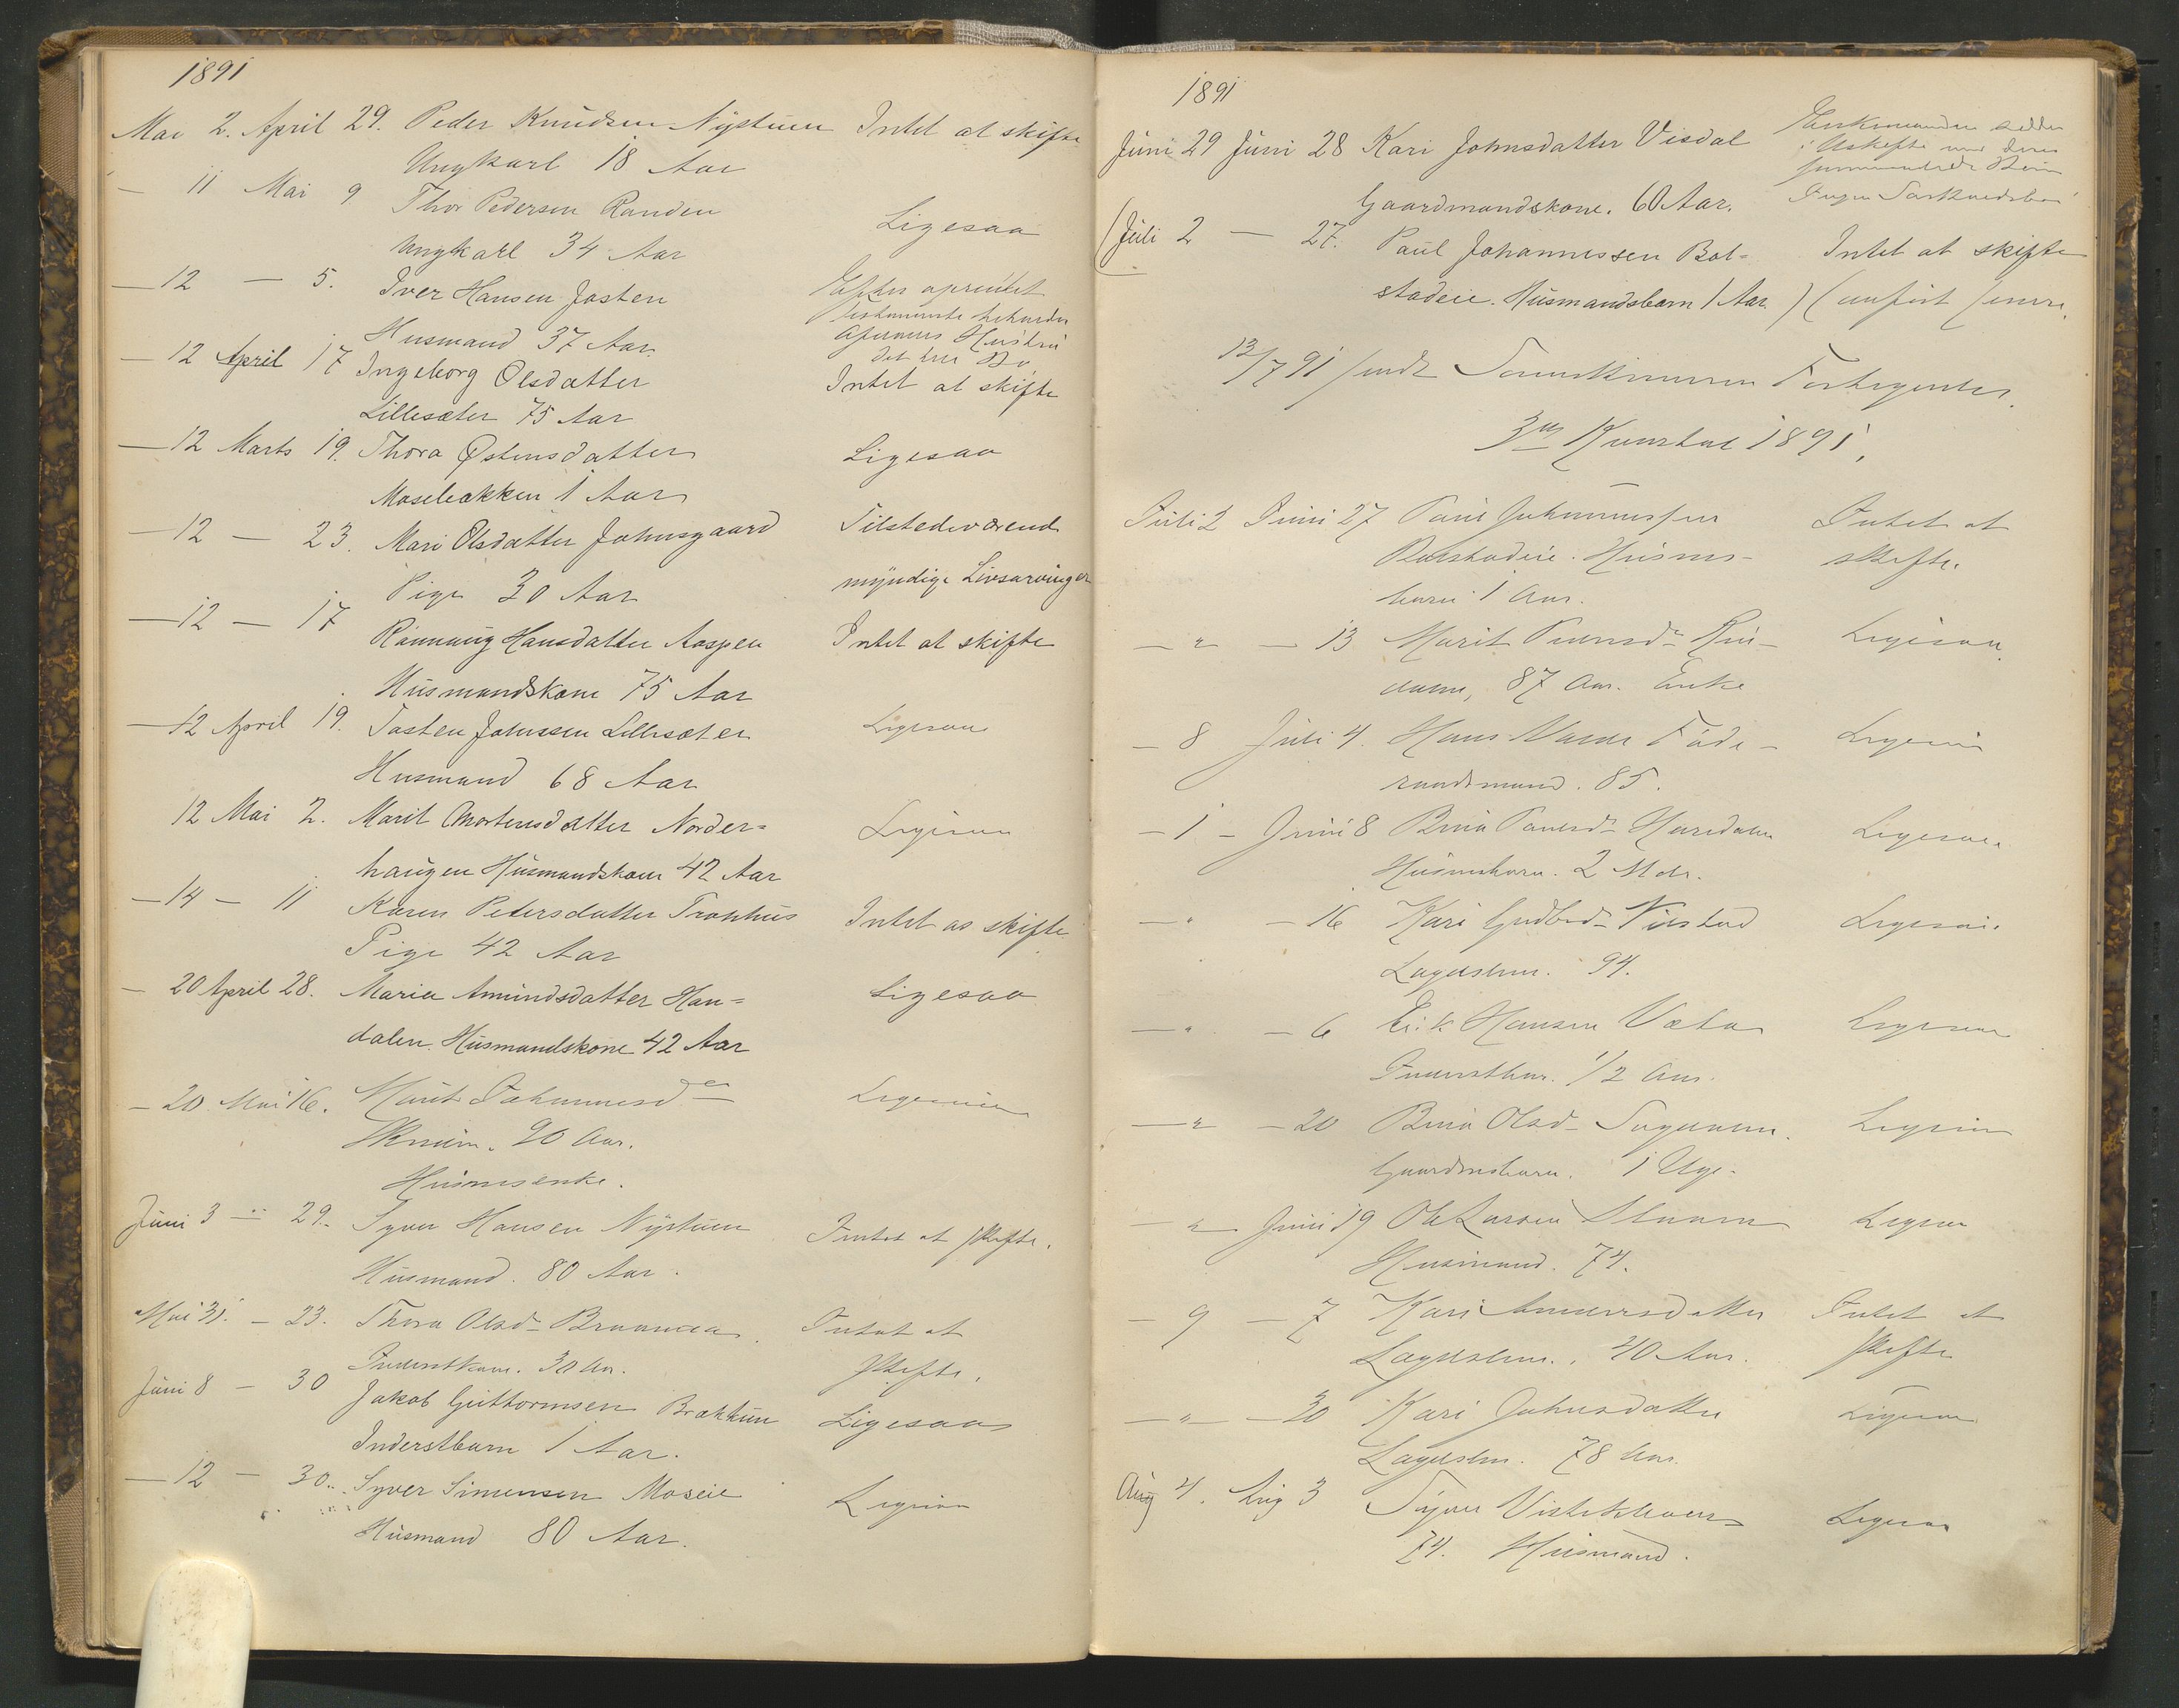 1891
Mai 2. April 29. Peder Knudsen Nÿstuen Intet at skifte
Ungkarl 18 Aar
— 11 Mai 9 Thor Pedersen Randen Ligesaa
Ungkarl 34 Aar
— 12 — 5. Iver Hansen Josten Efter oprettet
Husmand 37 Aar testamente beholder
Afdødes Hustru
det hele Bo
— 12 April 17 Ingeborg Olsdatter Intet at skifte
Lillesæter 75 Aar
— 12 Marts 19. Thora Østensdatter Ligesaa
Mosebakken 1 Aar
— 12 — 23. Mari Olsdatter Johnsgaard Tilstedeværende
Pige 30 Aar myndige Livsarvinger
— 12 — 17 Rønnaug Hansdatter Aaspen Intet at skifte
Husmandskone 75 Aar
— 12 April 19. Tosten Johnssen Lillesæter Ligesaa
Husmand 68 Aar
12 Mai 2. Marit Mortensdatter Norder=
haugen Husmandskone 42 Aar Ligesaa
— 14 — 11 Karen Petersdatter Tronhus Intet at skifte
Pige 42 Aar
— 20 April 28. Maria Amundsdatter Han= Ligesaa
dalen. Husmandskone 42 Aar
— 20 Mai 16. Marit Johannesdr Ligesaa
90 Aar.
Husmsenke.
Juni 3 — 29. Syver Hansen Nÿstuen Intet at skifte.
Husmand. 80 Aar.
Mai 31. — 23. Thora Olsdr Intet at
Inderstkone. 30 Aar. skifte.
Juni 8 — 30 Jakob Guttormsen Brækken Ligesaa
Inderstbarn 1 Aar.
— 12 — 30. Syver Simensen Moseie Ligesaa
Husmand 80 Aar.
1891
Juni 29 Juni 28 Kari Johnsdatter Visdal Enkemanden sidder
i Uskifte med deres
Gaardmandskone. 60 Aar. Ingen
(Juli 2 — 27. Paul Johannessen Bol= Intet at skifte
stadeie. Husmandsbarn 1 Aar.) (anført senere.
13/7 91 sendt Sorenskriveren Fortegnelse.
3die Kvartal 1891.
Juli 2 Juni 27 Paul Johannessen Intet at
Bolstadeie. Husms- skifte.
barn 1 Aar.
— " — 13 Marit Ligesaa
87 Aar. Enke
— 8 Juli 4. Hans Føde- Ligesaa
raadsmand. 85.
— 1 — Juni 8 Paulsdr Ligesaa
Husmsbarn. 2 Mdr.
— " — 16 Kari Gudbdr Ligesaa.
Lægdslem. 94.
— " — 6 Erik Hansen Ligesaa
Inderstbarn. 1/2 Aar.
— " — 20 Olsdr Ligesaa
Gaardmsbarn. 1 Uge.
— " — Juni 19 Ole Larsen Ligesaa
Husmand. 74.
— 9 — 7 Kari Andersdatter Intet at
Lægdslem. 40 Aar. skifte
— " — 30 Kari Johnsdatter Ligesaa
Lægdslem. 78 Aar.
Aug 4. Aug 3 Syver Ligesaa
74. Husmand.